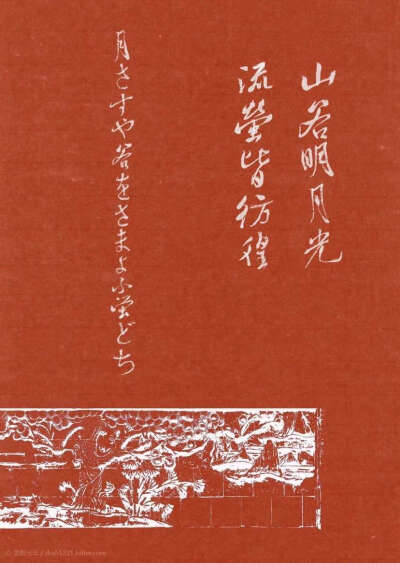 山谷明月光
流螢皆彷徨
月さすや谷をさまよふ蛍どち